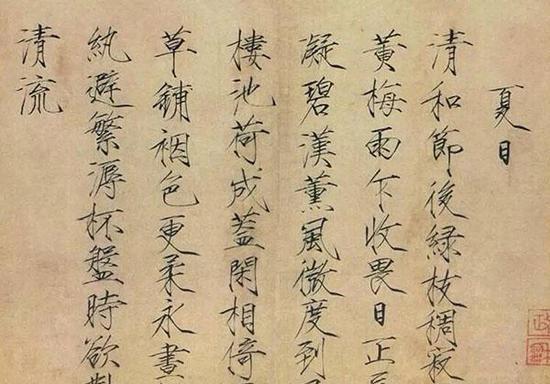 夏日
清和節後綠枝稠寂
黃梅雨乍收畏日正
凝碧漢薰風微度到
樓池荷成蓋閑相倚
草鋪裀色更柔永晝
紈避繁溽杯盤時欲對
清流